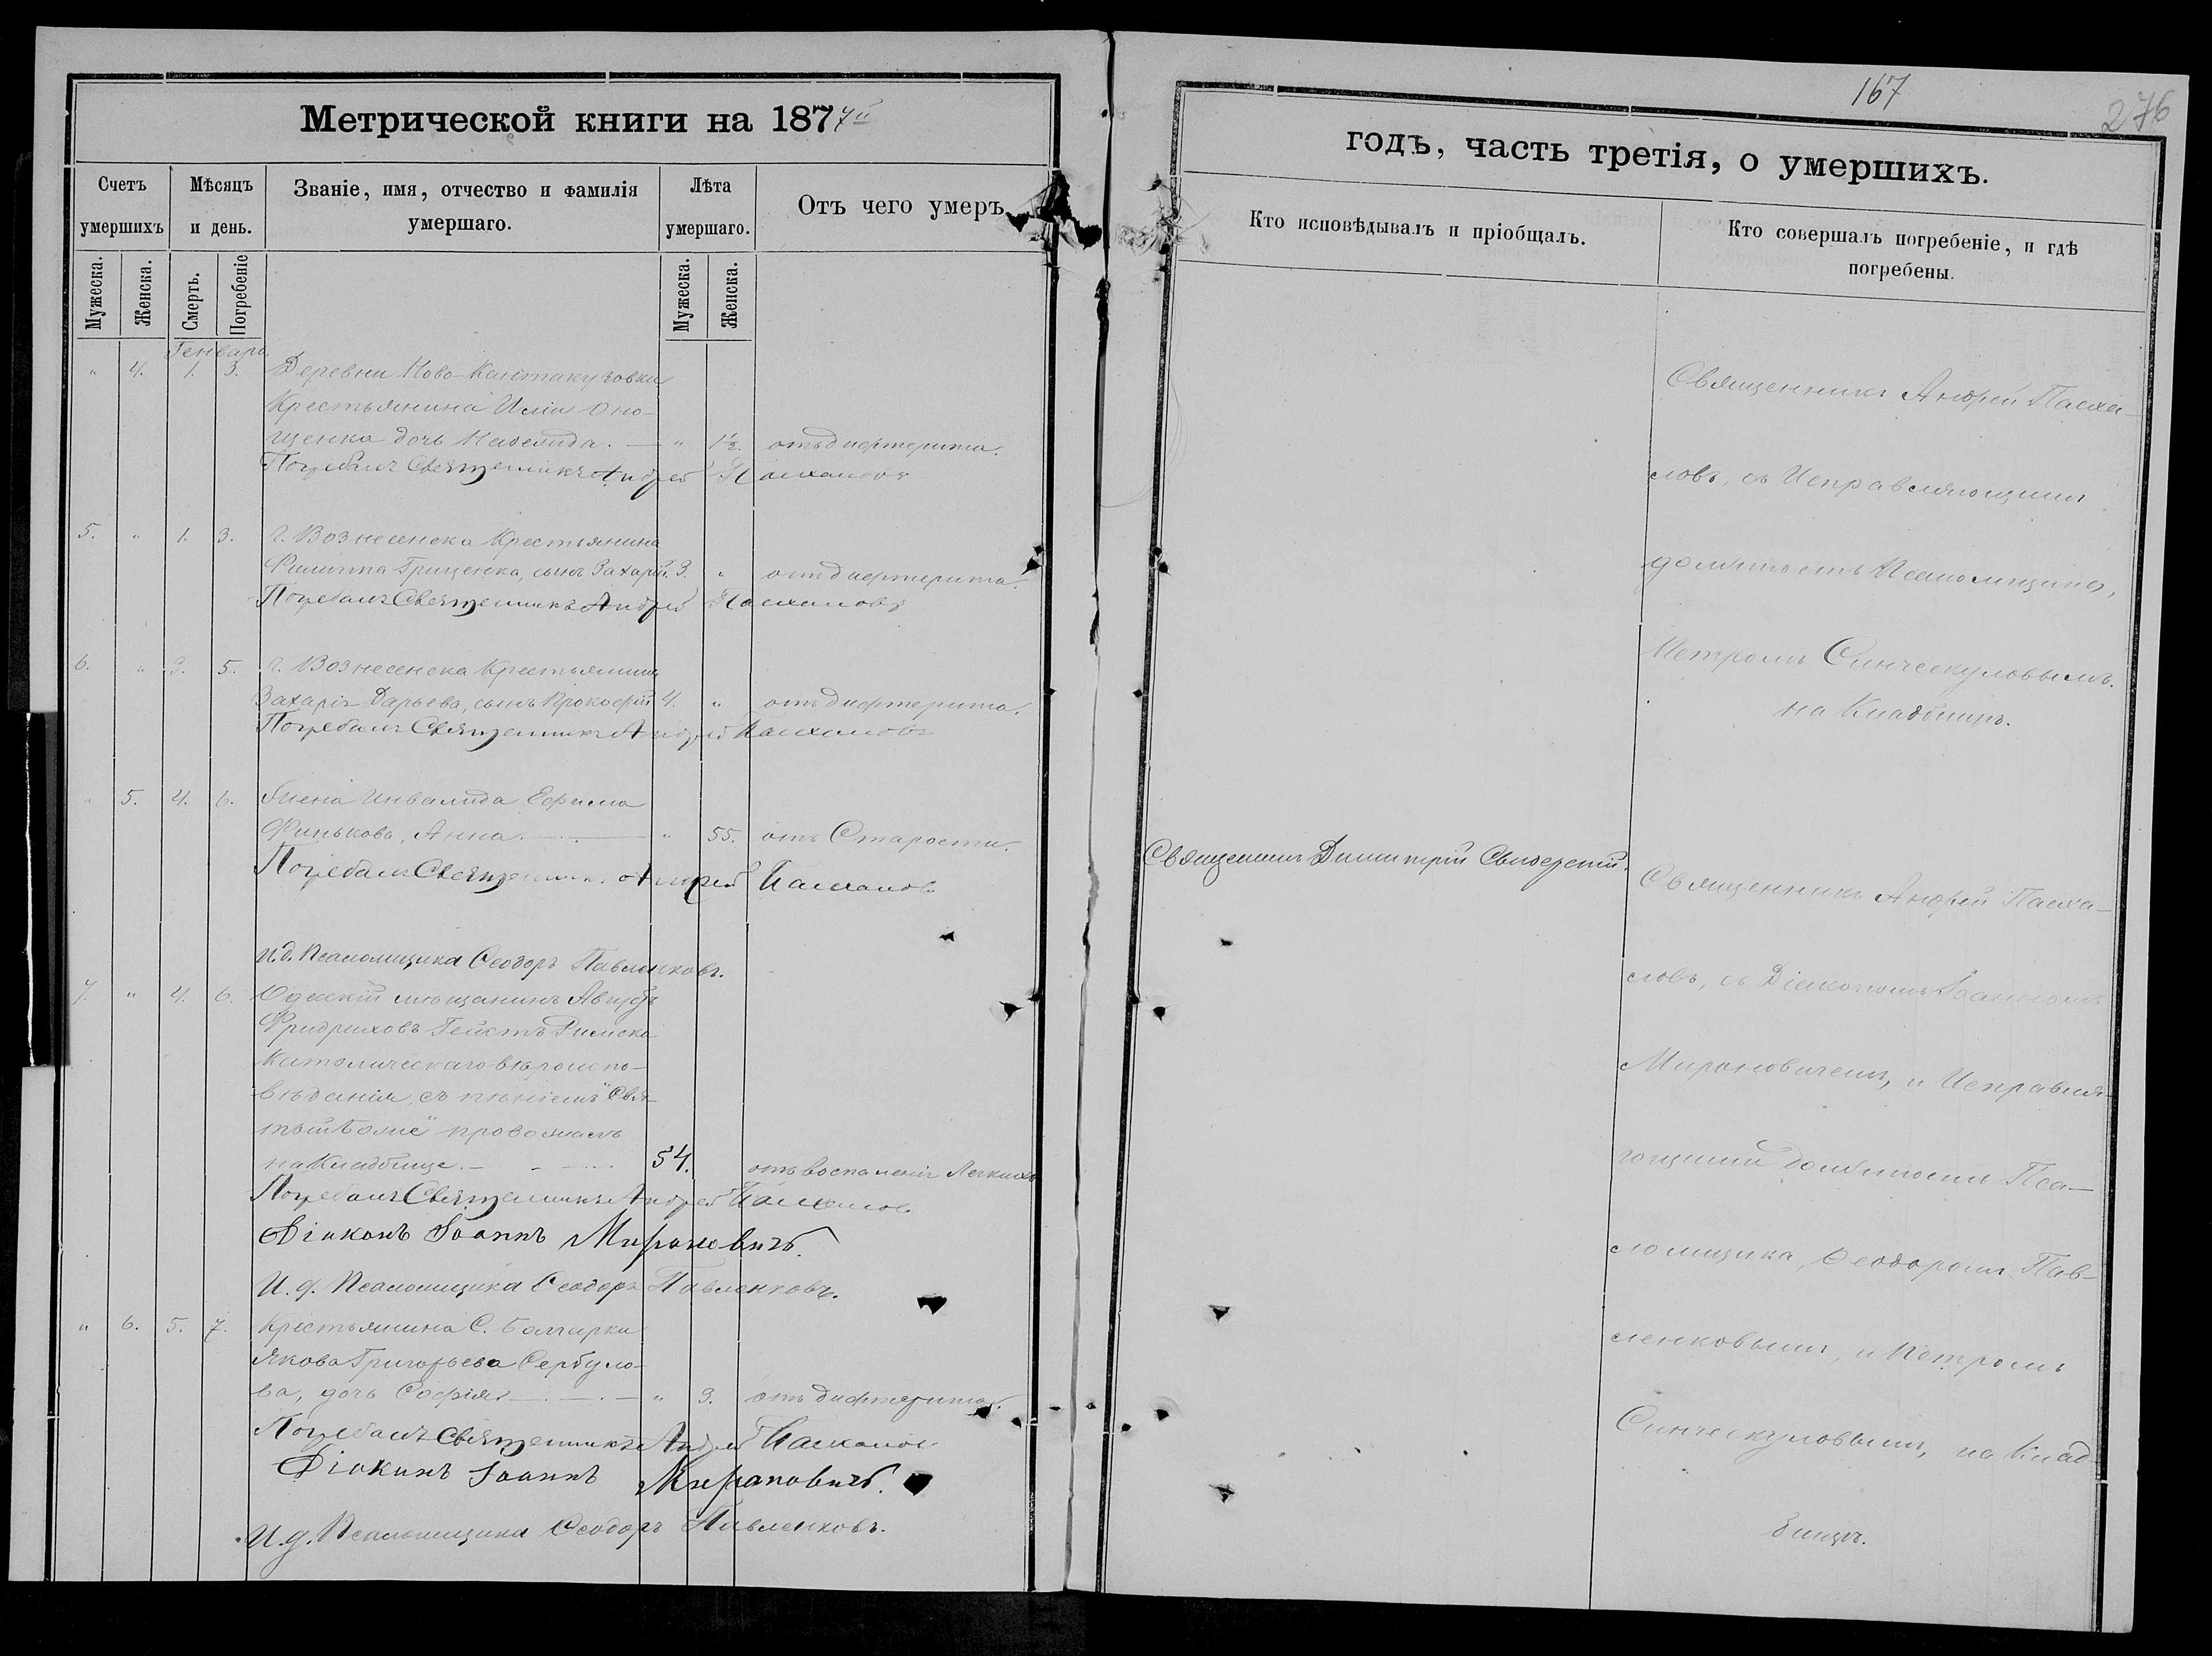 Метрической книги на 187 7й
Счетъ умершихъ
Мѣсяцъ и день.
Званіе, имя, отчество и фамилія умершаго.
Лѣта умершаго.
Отъ чего умеръ
Мужеска.
Женска.
Смерть.
Погребеніе
Мужеска.
Женска.
Генварь
" 4. 1. 3. Деревни Ново-Кантакузовки
Крестьянина Иліи Оно-
щенка дочь — " 1½. отъ дифтерита.
Погребалъ Священникъ Андрей Пасхаловъ
5. " 1. 3. г. Вознесенска Крестьянина
Филиппа Грищенка, сынъ Захарій. 3. " отъ дифтерита.
Погребалъ Священникъ Андрей Пасхаловъ
6. " 3. 5. г. Вознесенска Крестьянина
Захарія Дарьева, сынъ Прокофій 4. " отъ дифтерита.
Погребалъ Священникъ Андрей Пасхаловъ
5. 4. 6. Жена Инвалида Ефима
Финькова, Анна. — " 55. отъ Старости.
Погребалъ Священникъ Андрей Пасхаловъ
И.д. Псаломщика Ѳеодоръ Павленковъ.
7. " 4. 6. Одесскій мѣщанинъ Августъ
Фридриховъ Гейстъ Римско
Католическаго вѣроиспо-
вѣданія, съ пѣніемъ "Свя-
тый Боже" провожалъ
на Кладбище. — 54. отъ воспаленія Легкихъ
Погребалъ Священникъ Андрей Пасхаловъ
Діаконъ Іоаннъ Мироновичъ.
И. д. Псаломщика Ѳеодоръ Павленковъ.
" 6. 5. 7. Крестьянина С. Болгарки
Якова Григорьева Сербуло-
ва, дочь Софія — " 3. отъ дифтерита.
Погребалъ Священникъ Андрей Пасхаловъ
Діаконъ Іоаннъ Мироновичъ.
И. д. Псаломщика Ѳеодоръ Павленковъ.
167
276
годъ, часть третія, о умершихъ.
Кто исповѣдывалъ и пріобщалъ.
Кто совершалъ погребеніе, и гдѣ погребены.
Священникъ Андрей Пасха-
ловъ, съ Исправляющимъ
должность Псаломщика,
Петромъ Синческуловымъ.
на Кладбищѣ.
Священникъ Димитрій Свидерскій.
Священникъ Андрей Пасха-
ловъ, съ Діакономъ Іоанномъ
Мироновичемъ, и Исправля-
ющими должность Пса-
ломщика, Ѳеодоромъ Пав-
ленковымъ, и Петромъ
Синческуловымъ, на Клад-
бищѣ.